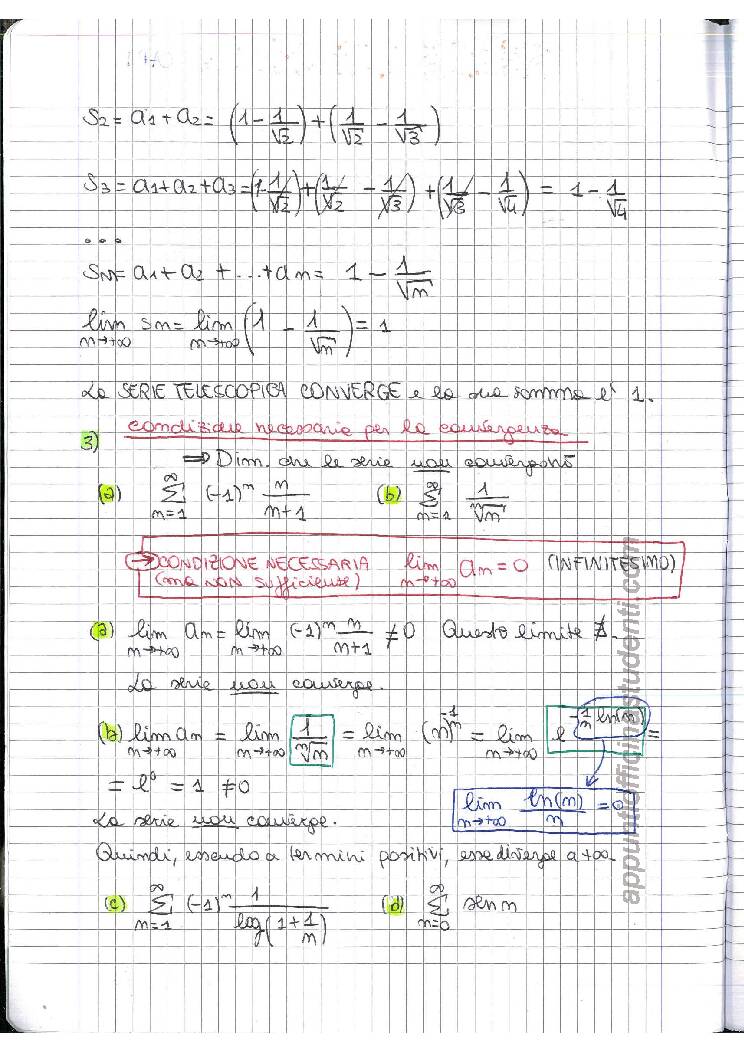 S₂ = a₁ + a₂ = (1 - 1/√2) + (1/√2 - 1/√3)
S₃ = a₁ + a₂ + a₃ = (1 - 1/√2) + (1/√2 - 1/√3) + (1/√3 - 1/√4) = 1 - 1/√4
...
Sₙ = a₁ + a₂ + ... + aₙ = 1 - 1/√n
lim n→+∞ sₙ = lim n→+∞ (1 - 1/√n) = 1
La SERIE TELESCOPICA CONVERGE e la sua somma è 1.
3) condizione necessaria per la convergenza
⇒ Dim. che le serie non convergono
(a) ∞ Σ n=1 (-1)ⁿ n/(n+1) (b) ∞ Σ n=1 1/ⁿ√n
→ CONDIZIONE NECESSARIA lim n→+∞ aₙ = 0 (INFINITESIMO)
(ma NON sufficiente)
(a) lim n→+∞ aₙ = lim n→+∞ (-1)ⁿ n/(n+1) ≠ 0 Questo limite ∄.
La serie non converge.
(b) lim n→+∞ aₙ = lim n→+∞ 1/ⁿ√n = lim n→+∞ (n)^(-1/n) = lim n→+∞ e^(-1/n ln(n)) =
= e⁰ = 1 ≠ 0
lim n→+∞ ln(n)/n = 0
La serie non converge.
Quindi, essendo a termini positivi, essa diverge a +∞.
(c) ∞ Σ n=1 (-1)ⁿ 1/log(1 + 1/n) (d) ∞ Σ n=0 sen n
appuntiofficinastudenti.com